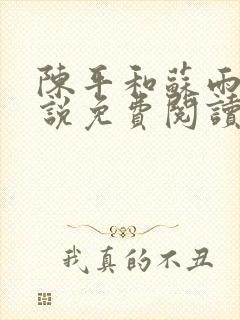 陳平和蘇雨
說免費閱讀
我真的不丑